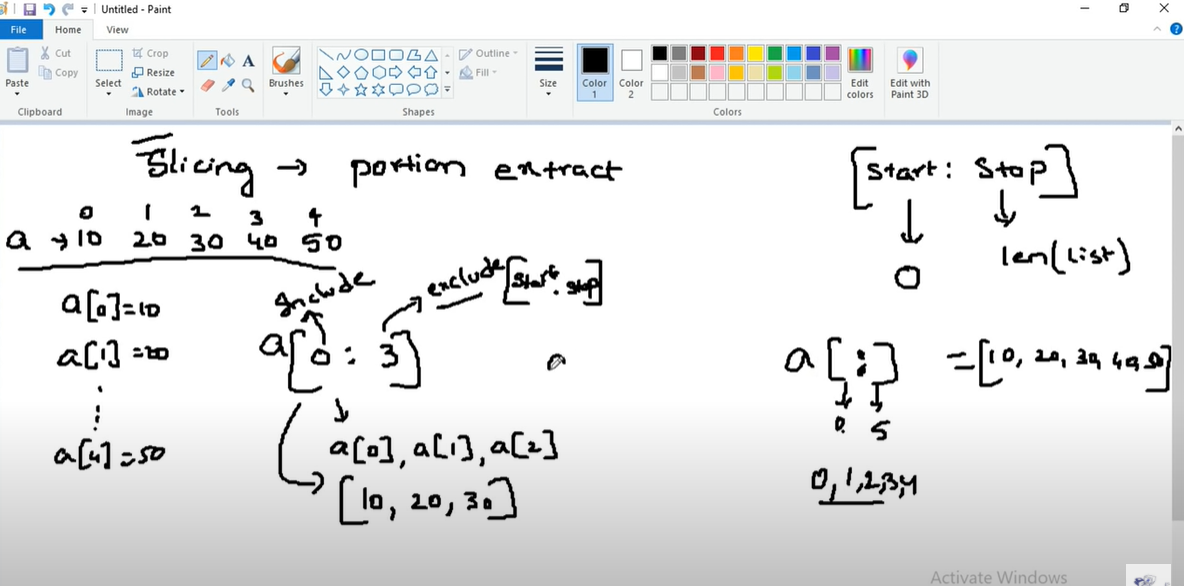 Untitled - Paint
File Home View
Paste
Cut
Copy
Clipboard
Select
Crop
Resize
Rotate
Image
A
Tools
Brushes
Outline
Fill
Shapes
Size
Color 1
Color 2
Edit colors
Edit with Paint 3D
Colors
Slicing → portion extract
0 1 2 3 4
a → 10 20 30 40 50
a[0]=10
a[1]=20
a[4]=50
Include
exclude [start: stop]
a[0:3]
a[0], a[1], a[2]
[10, 20, 30]
[start: stop]
0
len(list)
a[:] =[10, 20, 30, 40, 50]
0 5
0,1,2,3,4
Activate Windows